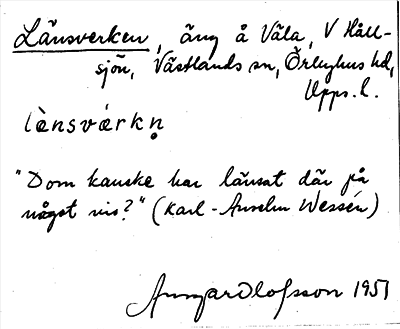 Länsverken, äng å Väla, V Håll-
sjön, Västlands sn, Örbyhus hd,
Upps. l.
lènsvǽrkn̥
"Dom kanske har länsat där på
något vis?" (Karl-Anselm Wessén)
Olofsson 1951